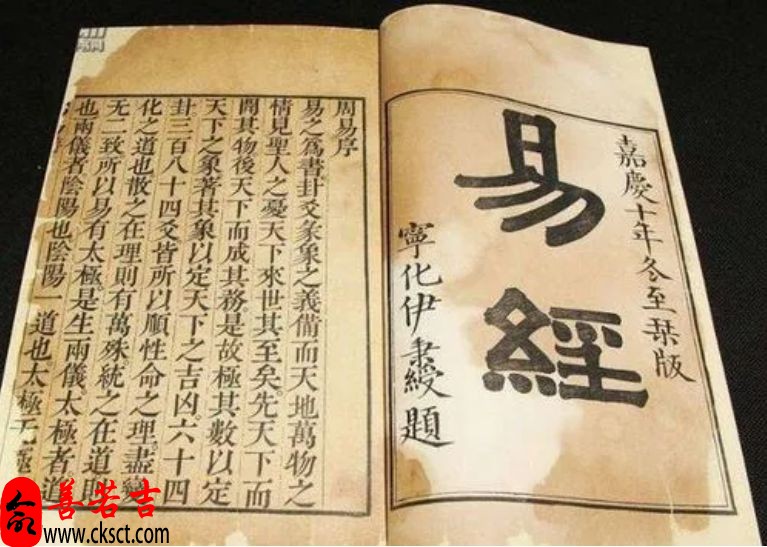 嘉慶十年冬至琹版
易經
寧化伊秉綬題
周易序
易之爲書。卦爻彖象之義備而天地萬物之
情見聖人之憂天下來世其至矣。先天下而
開其物後天下而成其務是故極其數以定
天下之象著其象以定天下之吉凶。六十四
卦三百八十四爻皆所以順性命之理。盡變
化之道也散之在理則有萬殊。統之在道則
无二致所以易有太極。是生兩儀太極者。道
也兩儀者陰陽也陰陽一道也太極无
善若吉
www.cksct.com